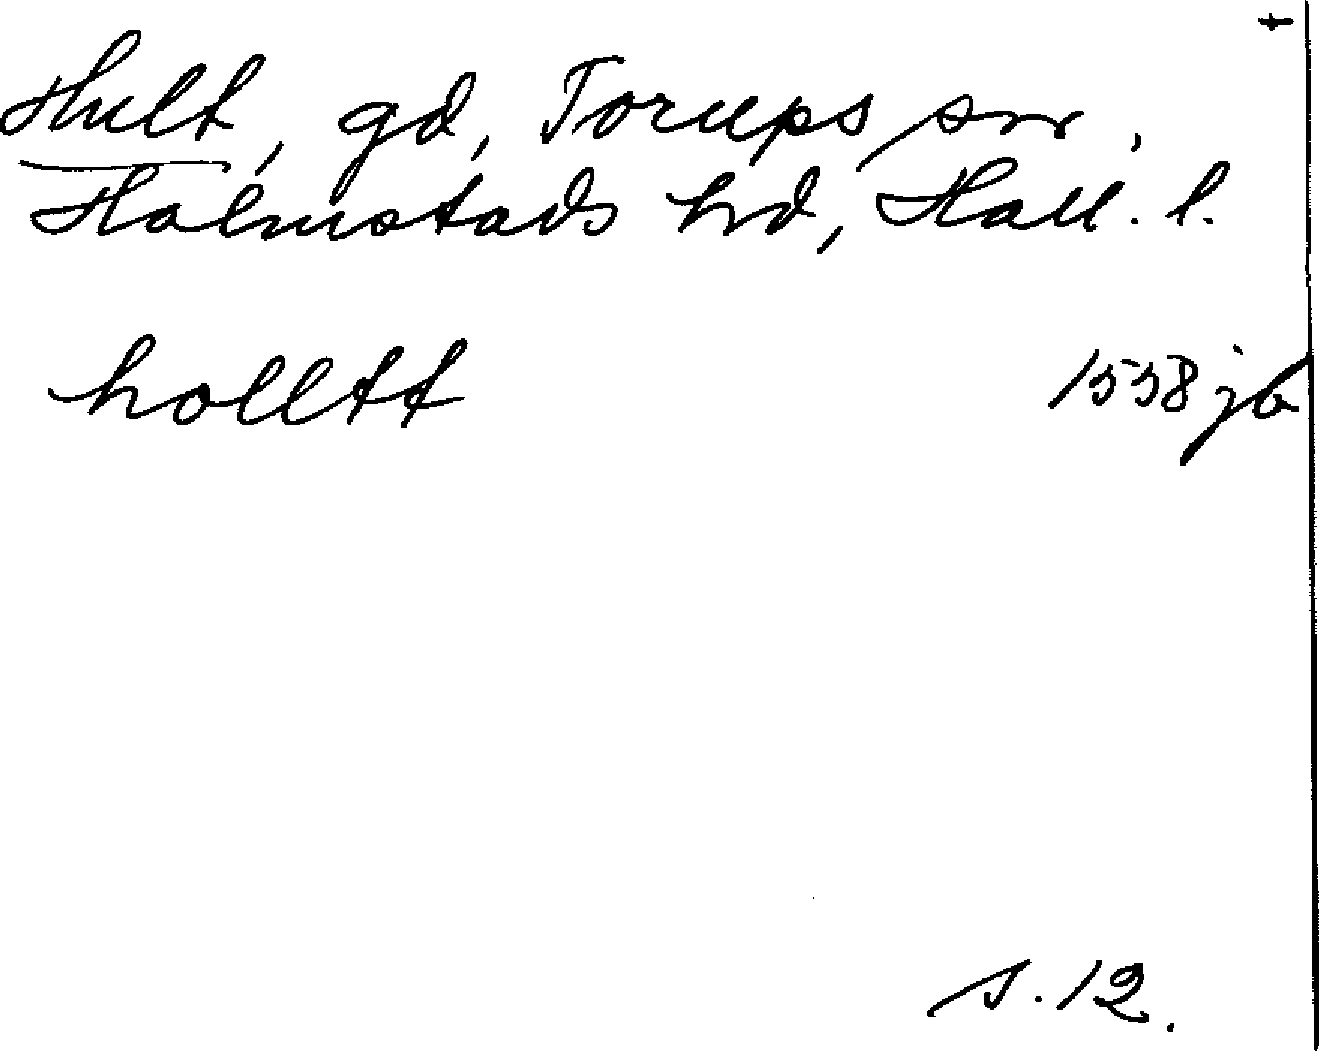 t
Hult, gd, Torups sn,
Halmstads hd, Hall. l.
holltt 1538 jb
s. 12.